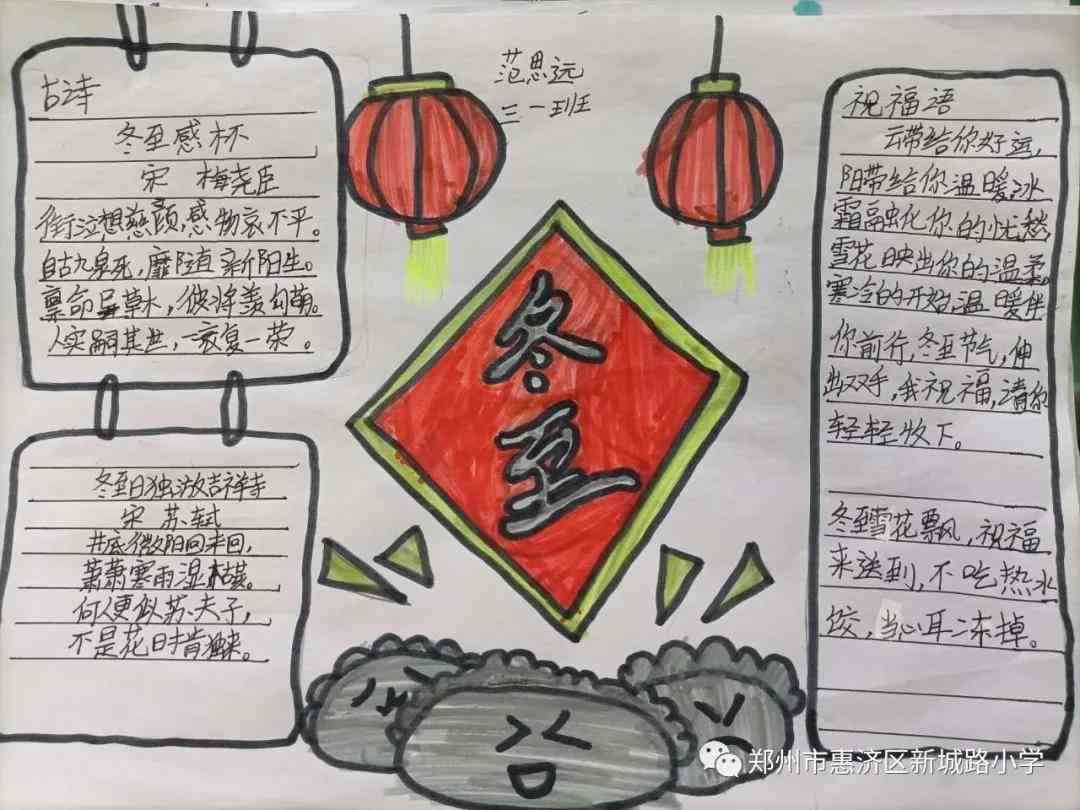 范思远
三一班
古诗
冬至感杯
宋 梅尧臣
街泣想慈颜,感物哀不平。
自古九泉死,靡随新阳生。
禀命异草木,彼将羡勾萌。
人实嗣其世,一衰复一荣。
冬至日独游吉祥寺
宋 苏轼
井底微阳回未回,
萧萧寒雨湿枯荄。
何人更似苏夫子,
不是花时肯独来。
冬至
祝福语
云带给你好运,
阳带给你温暖,冰
霜融化你的忧愁,
雪花映出你的温柔。
寒冷的开始,温暖伴
你前行,冬至节气,伸
出双手,我祝福,请你
轻轻收下。
冬至雪花飘,祝福
来送到,不吃热水
饺,当心耳冻掉。
郑州市惠济区新城路小学